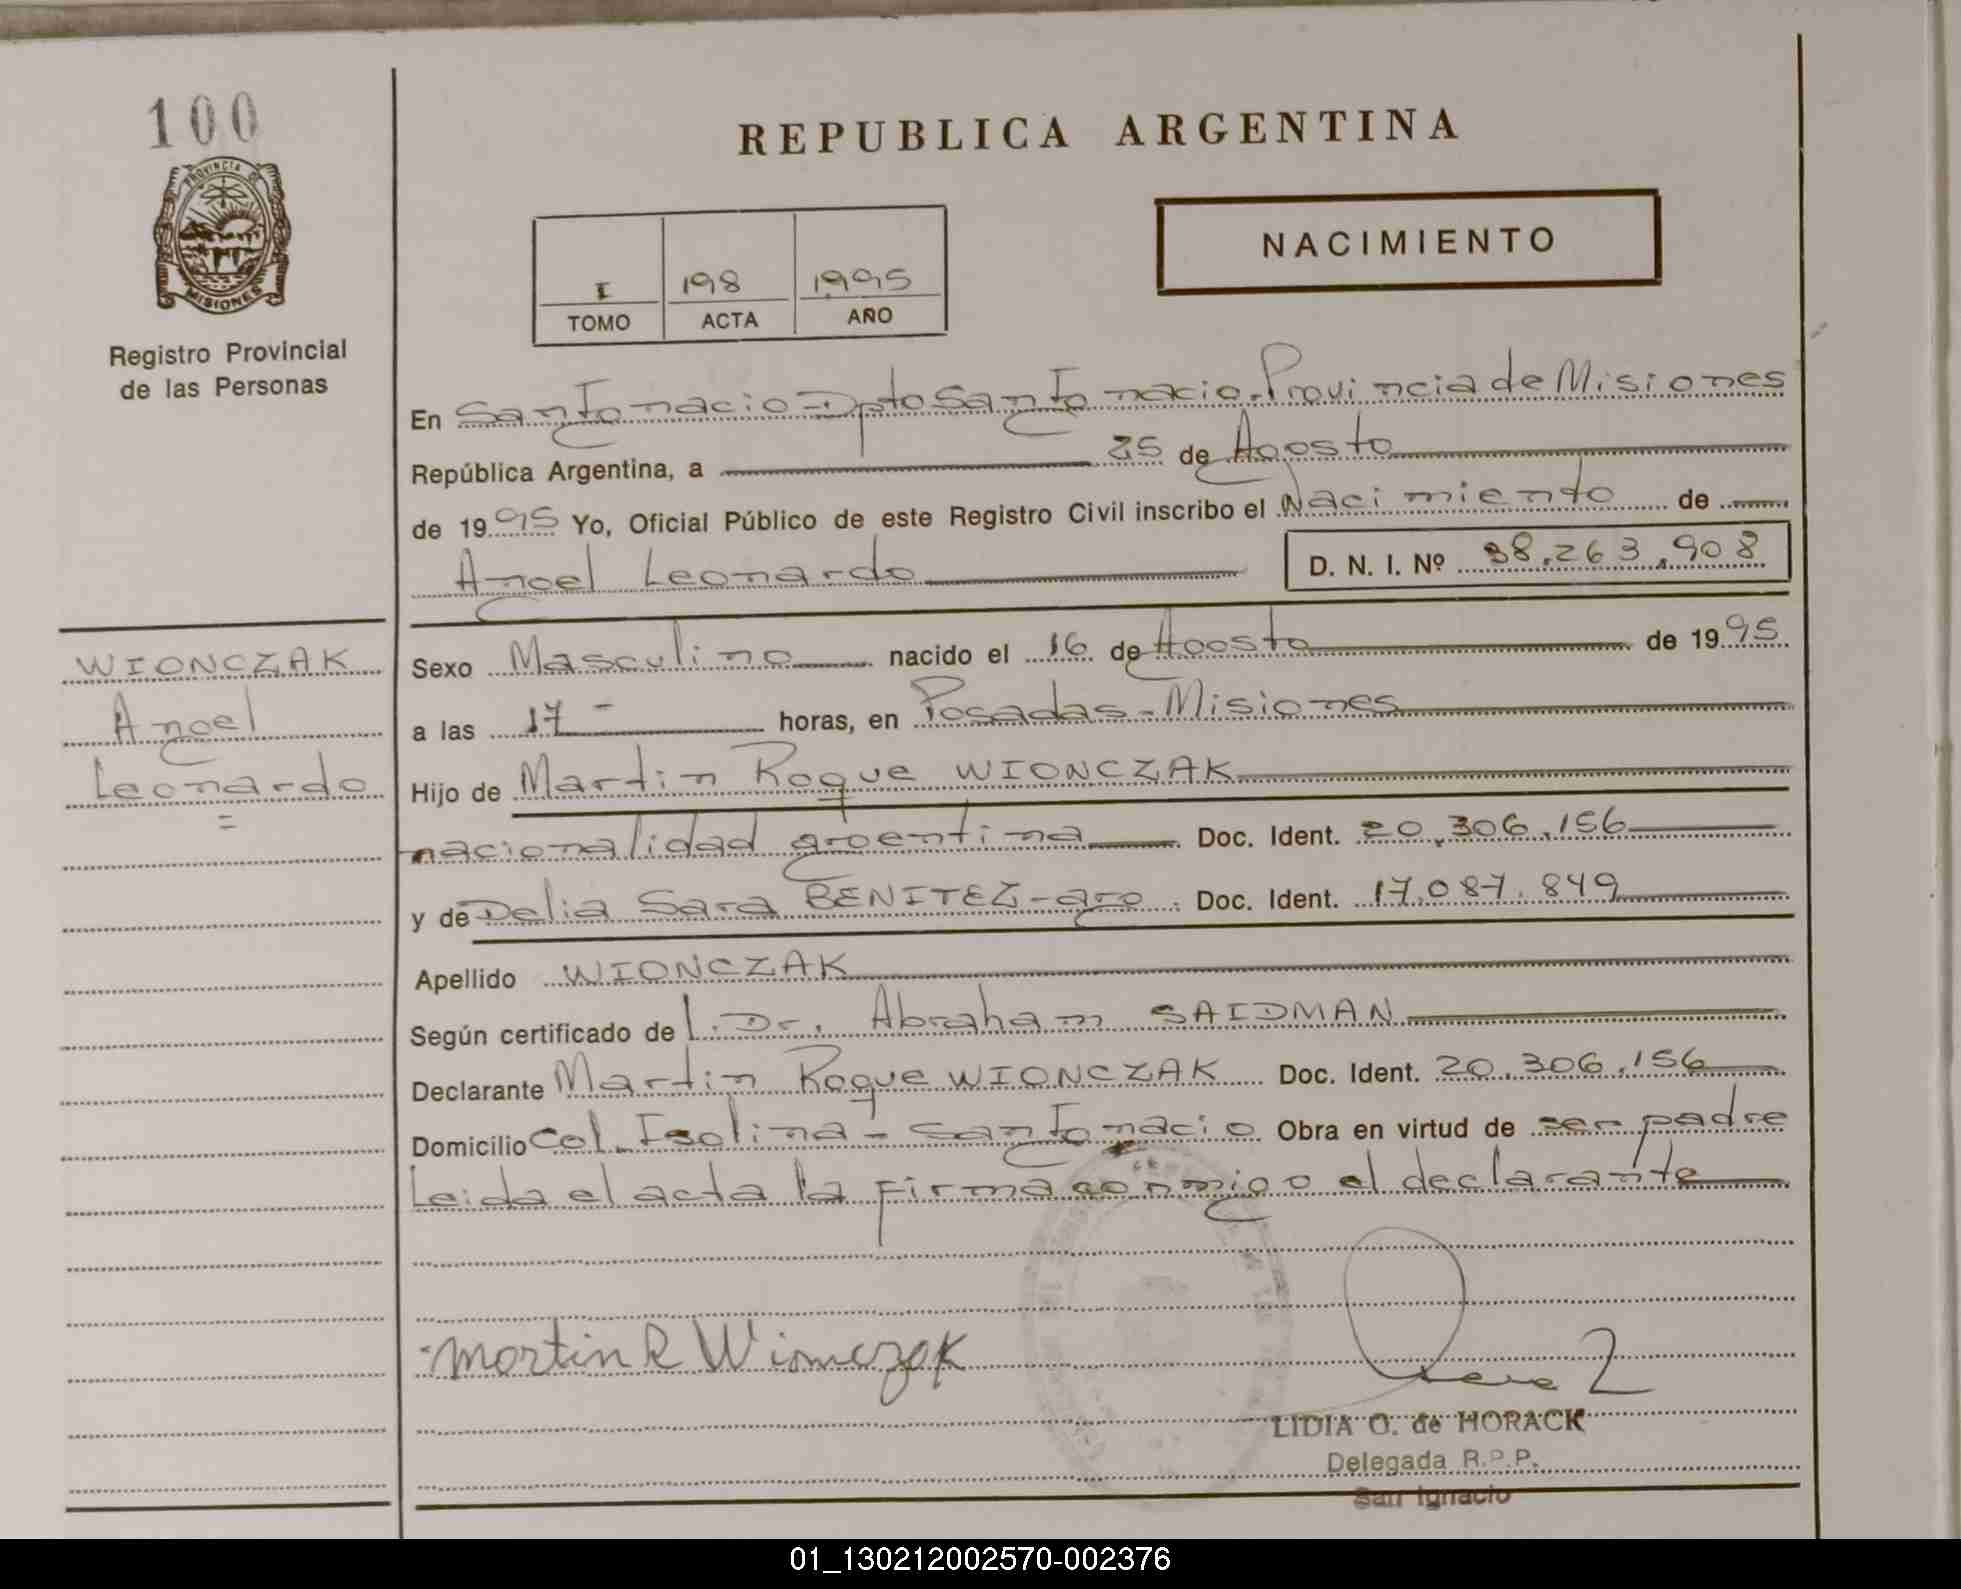 100
PROVINCIA DE
MISIONES
Registro Provincial
de las Personas
REPUBLICA ARGENTINA
NACIMIENTO
I 198 1995
TOMO ACTA AÑO
En San Ignacio - Dpto San Ignacio. Provincia de Misiones
República Argentina, a 25 de Agosto
de 1995 Yo, Oficial Público de este Registro Civil inscribo el Nacimiento de
Angel Leonardo D. N. I. Nº 38.263.908
WIONCZAK
Angel
Leonardo
=
Sexo Masculino nacido el 16 de Agosto de 1995
a las 17 - horas, en Posadas - Misiones
Hijo de Martin Roque WIONCZAK
nacionalidad argentina Doc. Ident. 20.306.156
y de Delia Sara BENITEZ - arg. Doc. Ident. 17.087.849
Apellido WIONCZAK
Según certificado de l. Dr. Abraham SAIDMAN
Declarante Martin Roque WIONCZAK Doc. Ident. 20.306.156
Domicilio Col. Isolina - San Ignacio Obra en virtud de ser padre
Leida el acta la firma conmigo el declarante
Martin R Wionczak
LIDIA O. de HORACK
Delegada R.P.P.
San Ignacio
01_130212002570-002376